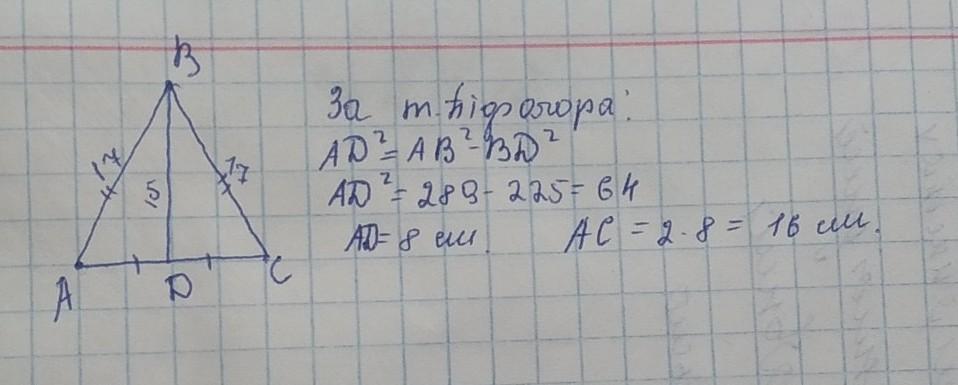 B
17
17
15
A
D
C
За т. Піфагора:
AD² = AB² - BD²
AD² = 289 - 225 = 64
AD = 8 см. AC = 2 · 8 = 16 см.